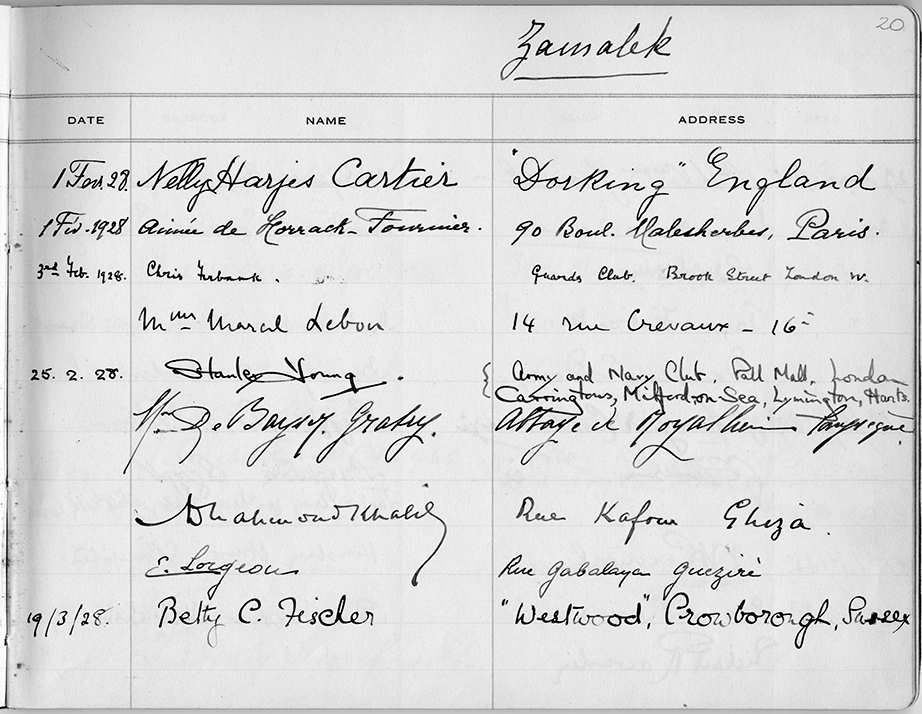 20
Zamalek
DATE NAME ADDRESS
1 Fev 28. Nelly Harjes Cartier "Dorking" England
1 Fév. 1928 Aimée de Horrack-Fournier. 90 Boul. Malesherbes, Paris.
3rd Feb. 1928. Chris Firbank. Guards Club. Brook Street London W.
Mme Marcel Lebon 14 rue Crevaux - 16e
25. 2. 28. Stanley Young. Army and Navy Club, Pall Mall, London
Carringtons, Milford-on-Sea, Lymington, Hants.
Mme De Abbaye de Royallieu
Mahmoud Khalil Rue Kafour Ghiza.
E. Lorgeou Rue Gabalaya Gueziré
19/3/28. Betty C. Fischer "Westwood", Crowborough, Sussex